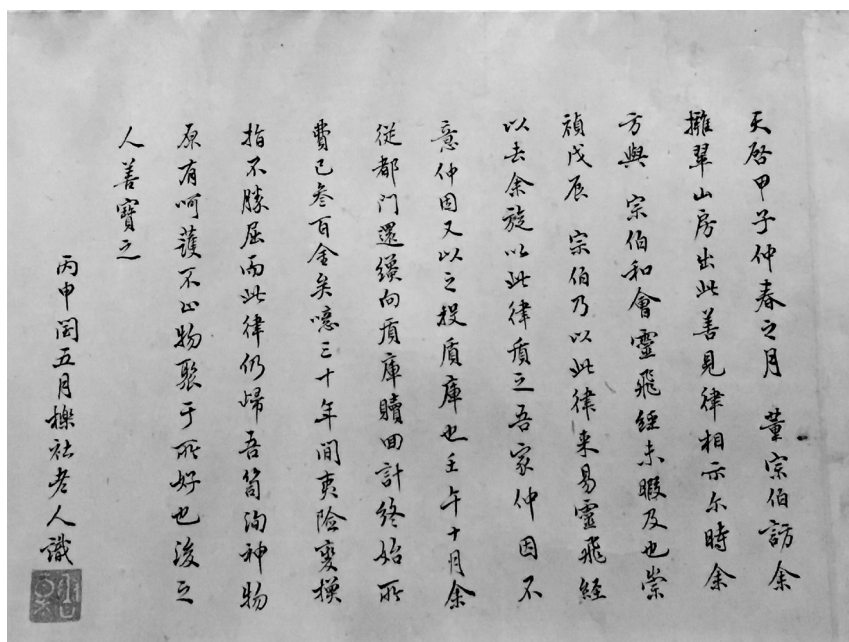 天啓甲子仲春之月 董宗伯訪余
擁翠山房出此善見律相示尔時余
方與 宗伯和會靈飛經未暇及也崇
禎戊辰 宗伯乃以此律来易靈飛経
以去余旋以此律質之吾家仲因不
意仲因又以之投質庫也壬午十月余
従都門還纔向質庫贖回計終始所
費已叁百金矣噫三十年間夷險變換
指不勝屈而此律仍歸吾笥洵神物
原有呵護不止物聚于所好也後之
人善寶之
丙申閏五月櫟社老人識